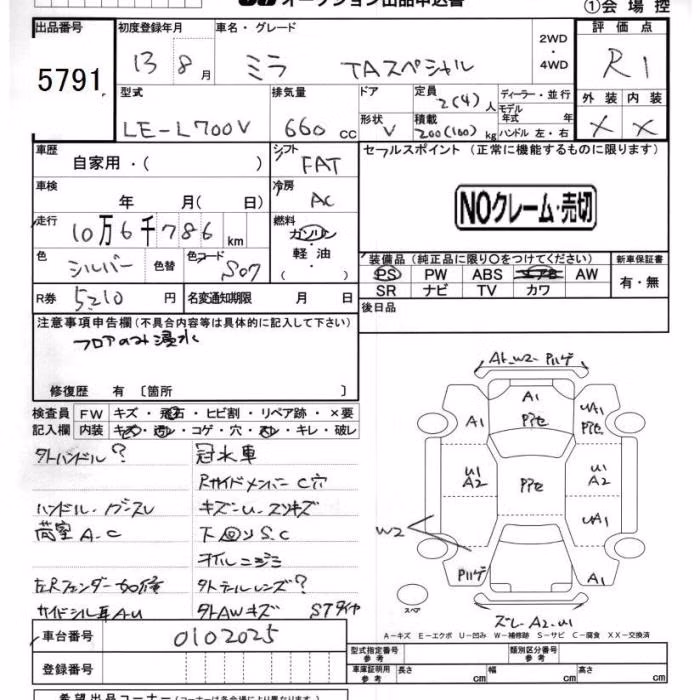 オークション出品申込書
①会場控
出品番号 初度登録年月 車名・グレード 評価点
5791 13 8月 ミラ TAスペシャル 2WD・4WD R1
型式 排気量 ドア 定員 2(4)人 ディーラー・並行 外装 内装
モデル年式 年
LE-L700V 660cc 形状 V 積載 200(100)kg ハンドル 左・右 × ×
車歴 シフト セールスポイント (正常に機能するものに限ります)
自家用・( ) FAT
車検 冷房
年 月( 日) AC
NOクレーム・売切
走行 燃料
10万6千786km ガソリン・軽油・( )
色 シルバー 色替 色コード S07
装備品 (純正品に限り○をつけてください) 新車保証書
PS PW ABS エアB AW 有・無
SR ナビ TV カワ
R券 5210円 名変通知期限 月 日 後日品
注意事項申告欄 (不具合内容等は具体的に記入して下さい)
フロアのみ浸水
修復歴 有 〔箇所 〕
検査員 FW キズ・飛石・ヒビ割・リペア跡・×要
記入欄 内装 キズ・コゲ・穴・キレ・破レ
外ハンドル? 冠水車
Rサイドメンバー C穴
ハンドル キズ-U
荷室 A.C 下回りS.C
オイルニジミ
左Rフェンダー 外テールレンズ?
サイドシル 外AWキズ STタイヤ
A1 A1 UA1
U1 A2 U1 A2
W2 UA1
A1
スペア
A2-U1
A-キズ E-エクボ U-凹み W-補修跡 S-サビ C-腐食 XX-交換済
車台番号 0102025
登録番号
型式指定番号 参考 類別区分番号 参考
車庫証明用 参考 長さ cm 幅 cm 高さ cm
希望出品コーナー (コーナーは各会場により異なります)